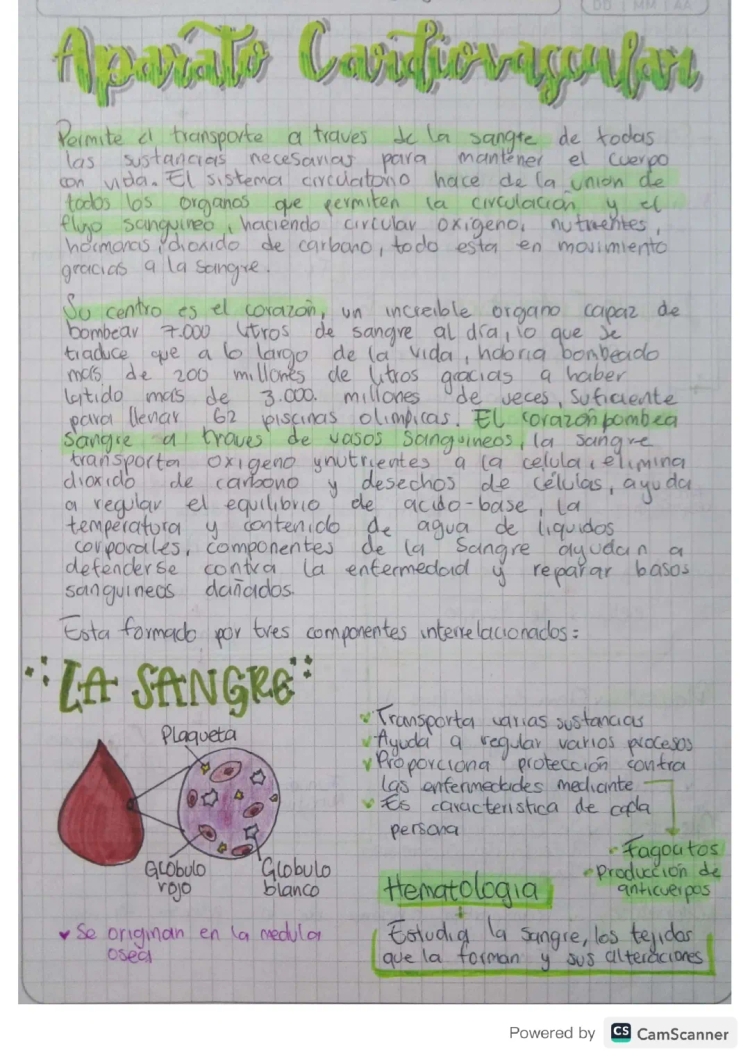 DD | MM | AA
Aparato Cardiovascular
Permite el transporte a traves de la sangre de todas
las sustancias necesarias para mantener el cuerpo
con vida. El sistema circulatorio hace de la union de
todos los organos que permiten la circulación y el
flujo sanguineo, haciendo circular oxigeno, nutrientes,
hormonas, dioxido de carbono, todo esta en movimiento
gracias a la sangre.
Su centro es el corazón, un increible organo capaz de
bombear 7.000 litros de sangre al día, lo que se
traduce que a lo largo de la vida, habria bombeado
más de 200 millones de litros gracias a haber
latido más de 3.000. millones de veces, suficiente
para llenar 62 piscinas olimpicas. El corazón bombea
sangre a traves de vasos sanguineos, la sangre
transporta oxigeno y nutrientes a la celula, elimina
dioxido de carbono y desechos de células, ayuda
a regular el equilibrio de acido-base, la
temperatura y contenido de agua de liquidos
corporales, componentes de la sangre ayudan a
defenderse contra la enfermedad y reparar basos
sanguineos dañados.
Esta formado por tres componentes interrelacionados:
LA SANGRE
Plaqueta
Glóbulo
rojo
Globulo
blanco
Se originan en la medula
osea
Transporta varias sustancias
Ayuda a regular varios procesos
Proporciona protección contra
las enfermedades mediante
Es caracteristica de cada
persona
Fagocitos
Producción de
anticuerpos
Hematologia
Estudia la sangre, los tejidos
que la forman y sus alteraciones
Powered by CS CamScanner